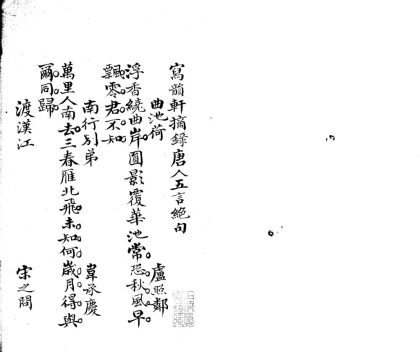 寫韻軒摘錄唐人五言絕句
曲池荷 盧照鄰
浮香繞曲岸圓影覆華池常恐秋風早
飄零君不知
南行別弟 韋承慶
萬里人南去三春雁北飛未知何歲月得與
爾同歸
渡漢江 宋之問